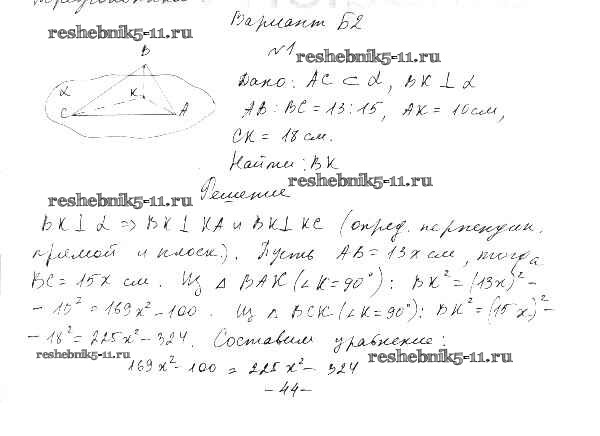 Вариант Б2
reshebnik5-11.ru
№1
reshebnik5-11.ru
B
α
K
C
A
Дано: AC ⊂ α, BK ⊥ α
AB : BC = 13 : 15, AK = 10 см,
CK = 18 см.
Найти: BK
reshebnik5-11.ru
Решение
reshebnik5-11.ru
BK ⊥ α ⇒ BK ⊥ KA и BK ⊥ KC (опред. перпендик.
прямой и плоск.). Пусть AB = 13x см, тогда
BC = 15x см. Из △ BAK (∠K = 90°): BK² = (13x)² –
– 10² = 169x² – 100. Из △ BCK (∠K = 90°): BK² = (15x)² –
– 18² = 225x² – 324. Составим уравнение:
reshebnik5-11.ru
reshebnik5-11.ru
169x² – 100 = 225x² – 324
– 44 –